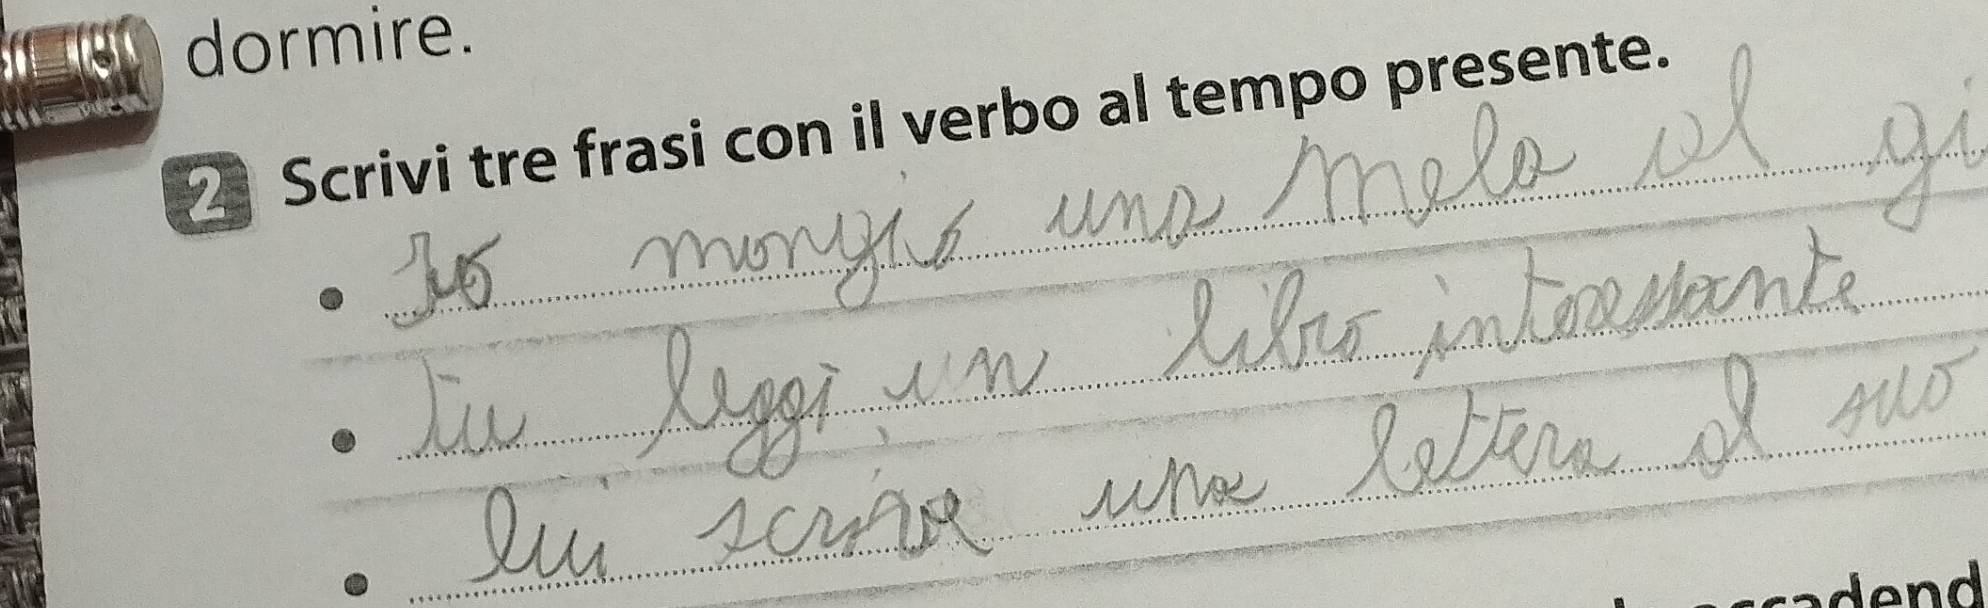 dormire.
2 Scrivi tre frasi con il verbo al tempo presente.
Io mangio una mela al gi
tu leggi un libro interessante
lui scrive una lettera al suo